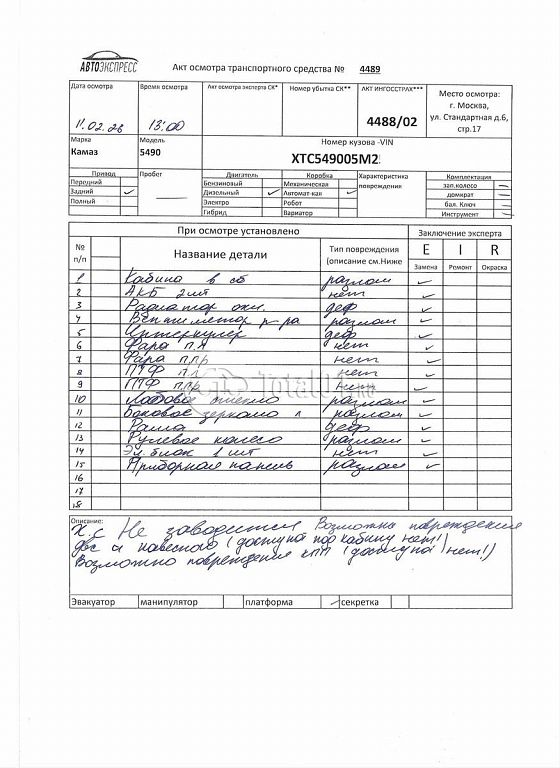 АВТОЭКСПРЕСС
Акт осмотра транспортного средства № 4489
Дата осмотра
11.02.26
Время осмотра
13:00
Акт осмотра эксперта СК*
Номер убытка СК**
АКТ ИНГОССТРАХ***
4488/02
Место осмотра:
г. Москва,
ул. Стандартная д.6,
стр.17
Марка
Камаз
Модель
5490
Номер кузова -VIN
XTC549005M2
Привод
Передний
Задний ✓
Полный
Пробег
Двигатель
Бензиновый
Дизельный ✓
Электро
Гибрид
Коробка
Механическая
Автомат-кая ✓
Робот
Вариатор
Характеристика
повреждения
Комплектация
зап.колесо –
домкрат –
бал. Ключ –
Инструмент –
При осмотре установлено
Заключение эксперта
№ п/п
Название детали
Тип повреждения
(описание см.Ниже
E Замена
I Ремонт
R Окраска
1 Кабина в сб разлом ✓
2 АКБ 2 шт нет ✓
3 Радиатор охл. деф ✓
4 Вентилятор р-ра разлом ✓
5 Интеркулер деф ✓
6 Фара п.л нет ✓
7 Фара п.пр нет ✓
8 ПТФ п.л нет ✓
9 ПТФ п.пр нет ✓
10 Лобовое стекло разлом ✓
11 Боковое зеркало л разлом ✓
12 Рама деф ✓
13 Рулевое колесо разлом ✓
14 Эл. блок 1 шт нет ✓
15 Приборная панель разлом ✓
16
17
18
Описание:
Х.с Не заводится Возможны повреждения
двс и навесного (доступа под кабину нет!)
Возможно повреждение кпп (доступа нет!)
Эвакуатор
манипулятор
платформа
✓ секретка